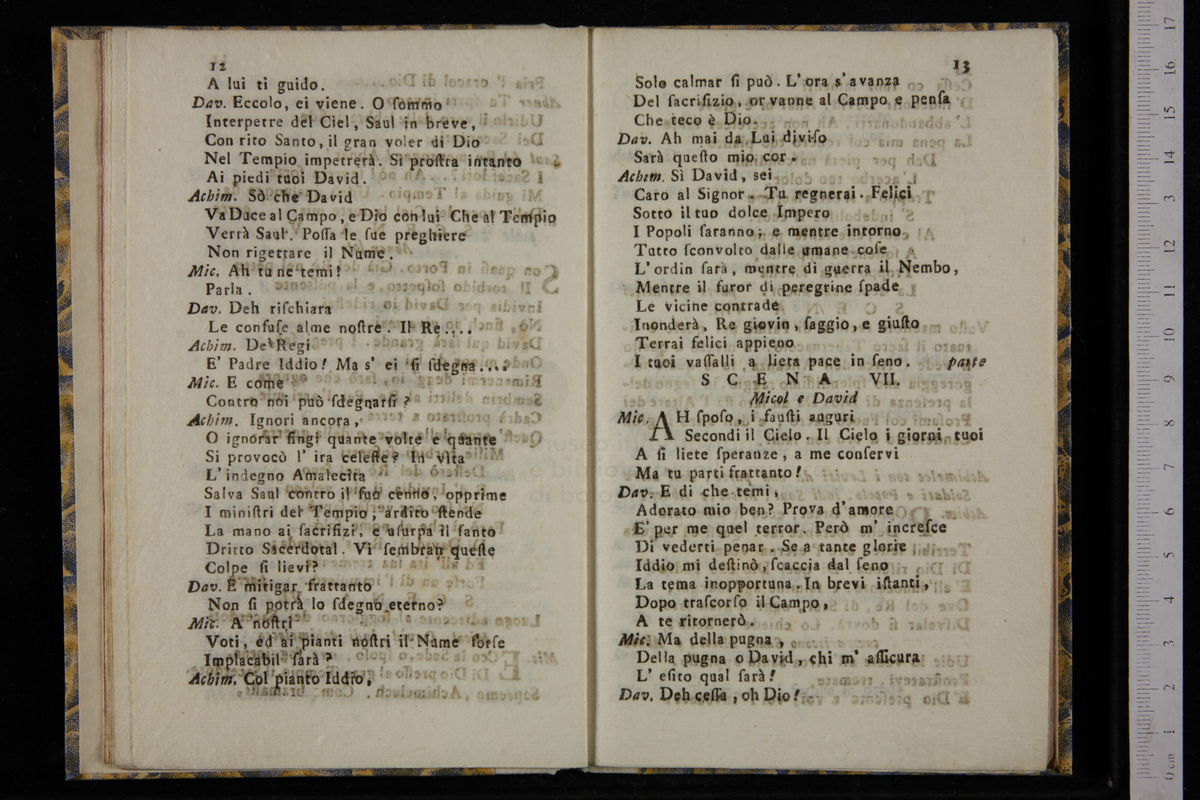 12
A lui ti guido.
Dav. Eccolo, ei viene. O ſommo
Interpetre del Ciel, Saul in breve,
Con rito Santo, il gran voler di Dio
Nel Tempio impetrerà. Si proſtra intanto
Ai piedi tuoi David.
Achim. Sò che David
Va Duce al Campo, e Dio con lui Che al Tempio
Verrà Saul. Poſſa le ſue preghiere
Non rigettare il Nume.
Mic. Ah tu ne temi!
Parla.
Dav. Deh riſchiara
Le confuſe alme noſtre. Il Re....
Achim. De' Regi
E' Padre Iddio! Ma s' ei ſi ſdegna...
Mic. E come
Contro noi può ſdegnarſi?
Achim. Ignori ancora,
O ignorar fingi quante volte e quante
Si provocò l' ira celeſte? In vita
L' indegno Amalecita
Salva Saul contro il ſuo cenno, opprime
I miniſtri del Tempio, ardito ſtende
La mano ai ſacrifizi, e uſurpa il ſanto
Dritto Sacerdotal. Vi ſembran queſte
Colpe ſi lievi?
Dav. E mitigar frattanto
Non ſi potrà lo ſdegno eterno?
Mic. A noſtri
Voti, ed ai pianti noſtri il Nume forſe
Implacabil ſarà?
Achim. Col pianto Iddio,
13
Solo calmar ſi può. L' ora s' avanza
Del ſacrifizio, or vanne al Campo e penſa
Che teco è Dio.
Dav. Ah mai da Lui diviſo
Sarà queſto mio cor.
Achim. Sì David, sei
Caro al Signor. Tu regnerai. Felici
Sotto il tuo dolce Impero
I Popoli ſaranno; e mentre intorno
Tutto ſconvolto dalle umane coſe
L' ordin ſarà, mentre di guerra il Nembo,
Mentre il furor di peregrine ſpade
Le vicine contrade
Inonderà, Re giovin, ſaggio, e giuſto
Terrai felici appieno
I tuoi vaſſalli a lieta pace in ſeno. parte
SCENA VII.
Micol e David
Mic. AH ſpoſo, i fauſti auguri
Secondi il Cielo. Il Cielo i giorni tuoi
A ſi liete ſperanze, a me conſervi
Ma tu parti frattanto!
Dav. E di che temi,
Adorato mio ben? Prova d' amore
E' per me quel terror. Però m' increſce
Di vederti penar. Se a tante glorie
Iddio mi deſtinò, ſcaccia dal ſeno
La tema inopportuna. In brevi iſtanti,
Dopo traſcorſo il Campo,
A te ritornerò.
Mic. Ma della pugna,
Della pugna o David, chi m' aſſicura
L' eſito qual ſarà!
Dav. Deh ceſſa, oh Dio!